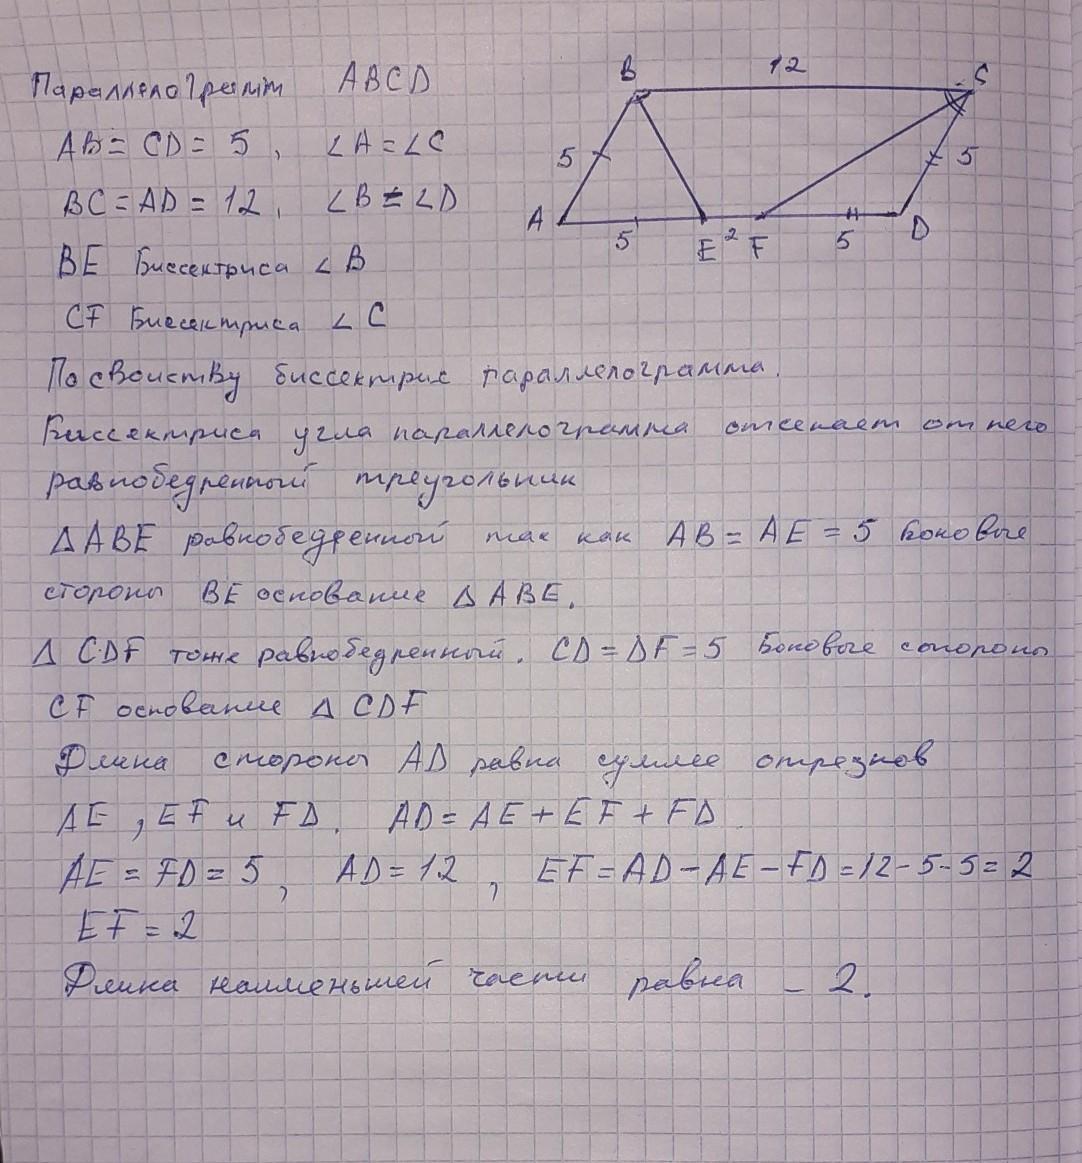 Параллелограмм ABCD
AB = CD = 5, ∠A = ∠C
BC = AD = 12, ∠B = ∠D
BE Биссектриса ∠B
CF Биссектриса ∠C
B 12 C
5 5
A 5 E 2 F 5 D
По свойству биссектрис параллелограмма.
Биссектриса угла параллелограмма отсекает от него
равнобедренный треугольник
△ABE равнобедренный так как AB = AE = 5 Боковые
стороны BE основание △ABE.
△CDF тоже равнобедренный. CD = DF = 5 Боковые стороны
CF основание △CDF
Длина стороны AD равна сумме отрезков
AE, EF и FD. AD = AE + EF + FD
AE = FD = 5, AD = 12, EF = AD - AE - FD = 12 - 5 - 5 = 2
EF = 2
Длина наименьшей части равна - 2.